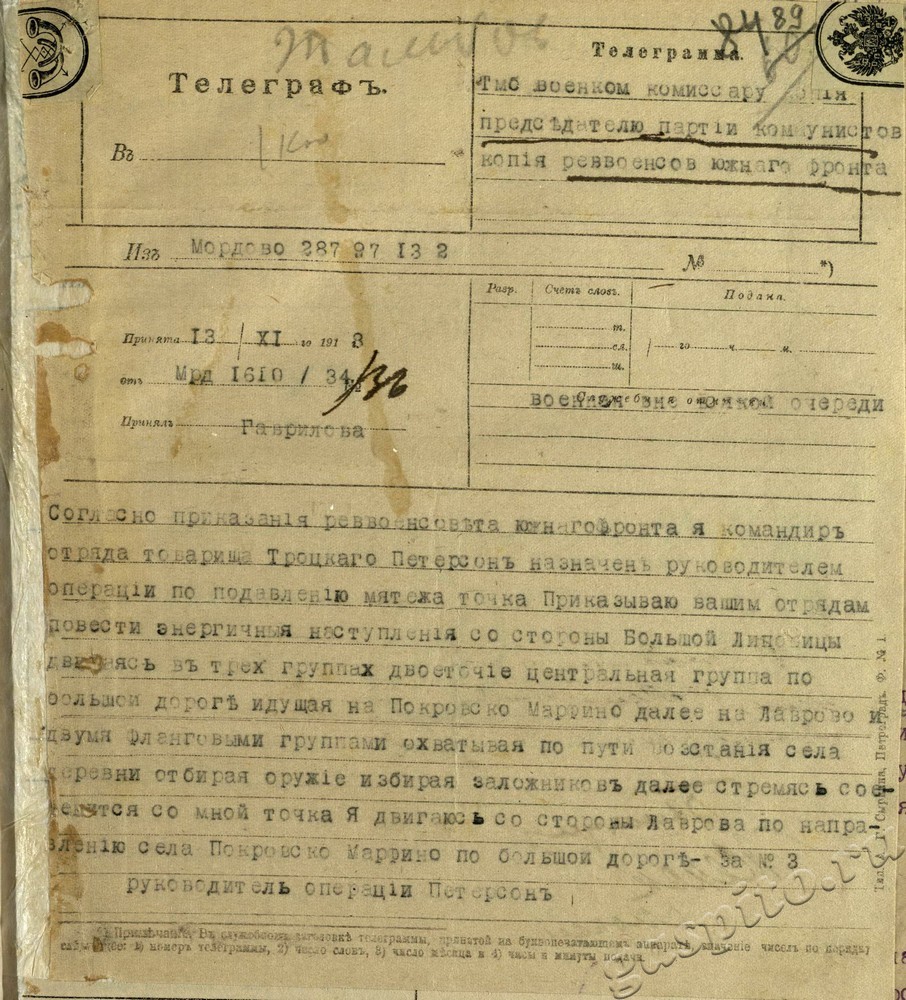 84 89
Телеграфъ.
Въ
Телеграмма.
Тмб военком комиссару копія
предсѣдателю партіи коммунистов
копія реввоенсов южнаго фронта
Изъ Мордово 287 97 13 2 № *)
Разр. Счетъ словъ. Подана.
т.
сл. го ч. м.
ш.
Принята 13 / XI го 191 8
отъ Мрд 1610 / 34
Принялъ Гаврилова
Служебныя отмѣтки
военная внѣ всякой очереди
Согласно приказанія реввоенсовѣта южнагофронта я командиръ
отряда товарища Троцкаго Петерсонъ назначенъ руководителем
операціи по подавленію мятежа точка Приказываю вашим отрядам
повести энергичныя наступленія со стороны Большой Липовицы
двигаясь въ трех группах двоеточіе центральная группа по
большой дорогѣ идущая на Покровско Марфино далее на Лаврово и
двумя фланговыми группами охватывая по пути возстанія села
деревни отбирая оружіе избирая заложниковъ далее стремясь сое-
со мной точка Я двигаюсь со стороны Лаврова по напра-
вленію села Покровско Марфино по большой дорогѣ- за № 3
руководитель операціи Петерсонъ
*) Примѣчаніе. Въ служебномъ заголовкѣ телеграммы, принятой на буквопечатающемъ аппаратѣ, значеніе чиселъ по порядку
слѣдующее: 1) номеръ телеграммы, 2) число словъ, 3) число мѣсяца и 4) часы и минуты подачи.
Петроградъ Ф. № 1
gaspito.ru